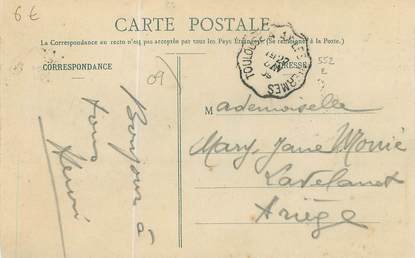 6 €
CARTE POSTALE
La Correspondance au recto n'est pas acceptée par tous les Pays Étrangers. (Se renseigner à la Poste.)
CORRESPONDANCE
ADRESSE
09
552
Bonjour à
tous
Henri
Mademoiselle
Mary, Jane Monié
Lavelanet
Ariège
TOULOUSE